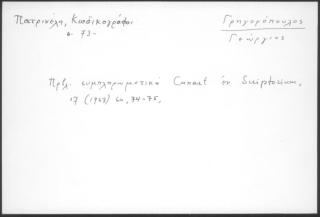 Πατρινέλη, Κωδικογράφοι
σ. 73-
Γρηγορόπουλος
Γεώργιος
Πρβλ. συμπληρωματικά Canart ἐν Scriptorium,
17 (1963) 60, 74-75,